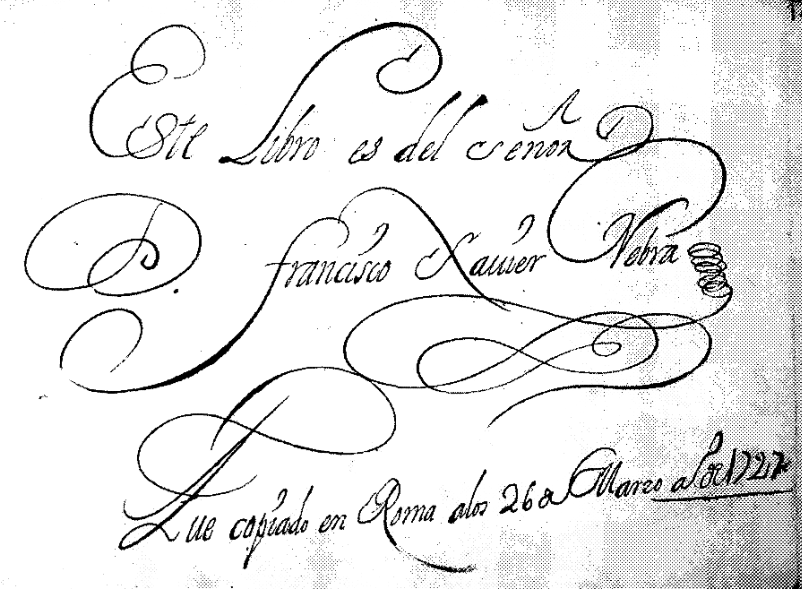 Este Libro es del señor
D. francisco Xavier Nebra
Fue copiado en Roma alos 26 de Marzo año de 1727